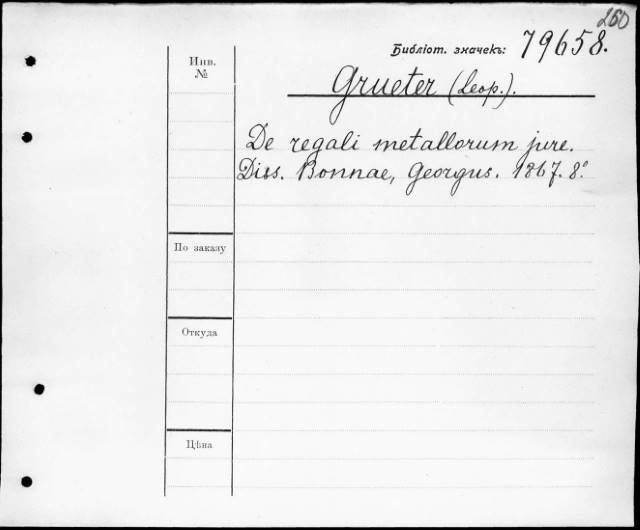 260
Библіот. значекъ: 79658.
Инв. №
Grueter (Leop.).
De regali metallorum jure.
Diss. Bonnae, Georgus. 1867. 8º
По заказу
Откуда
Цѣна